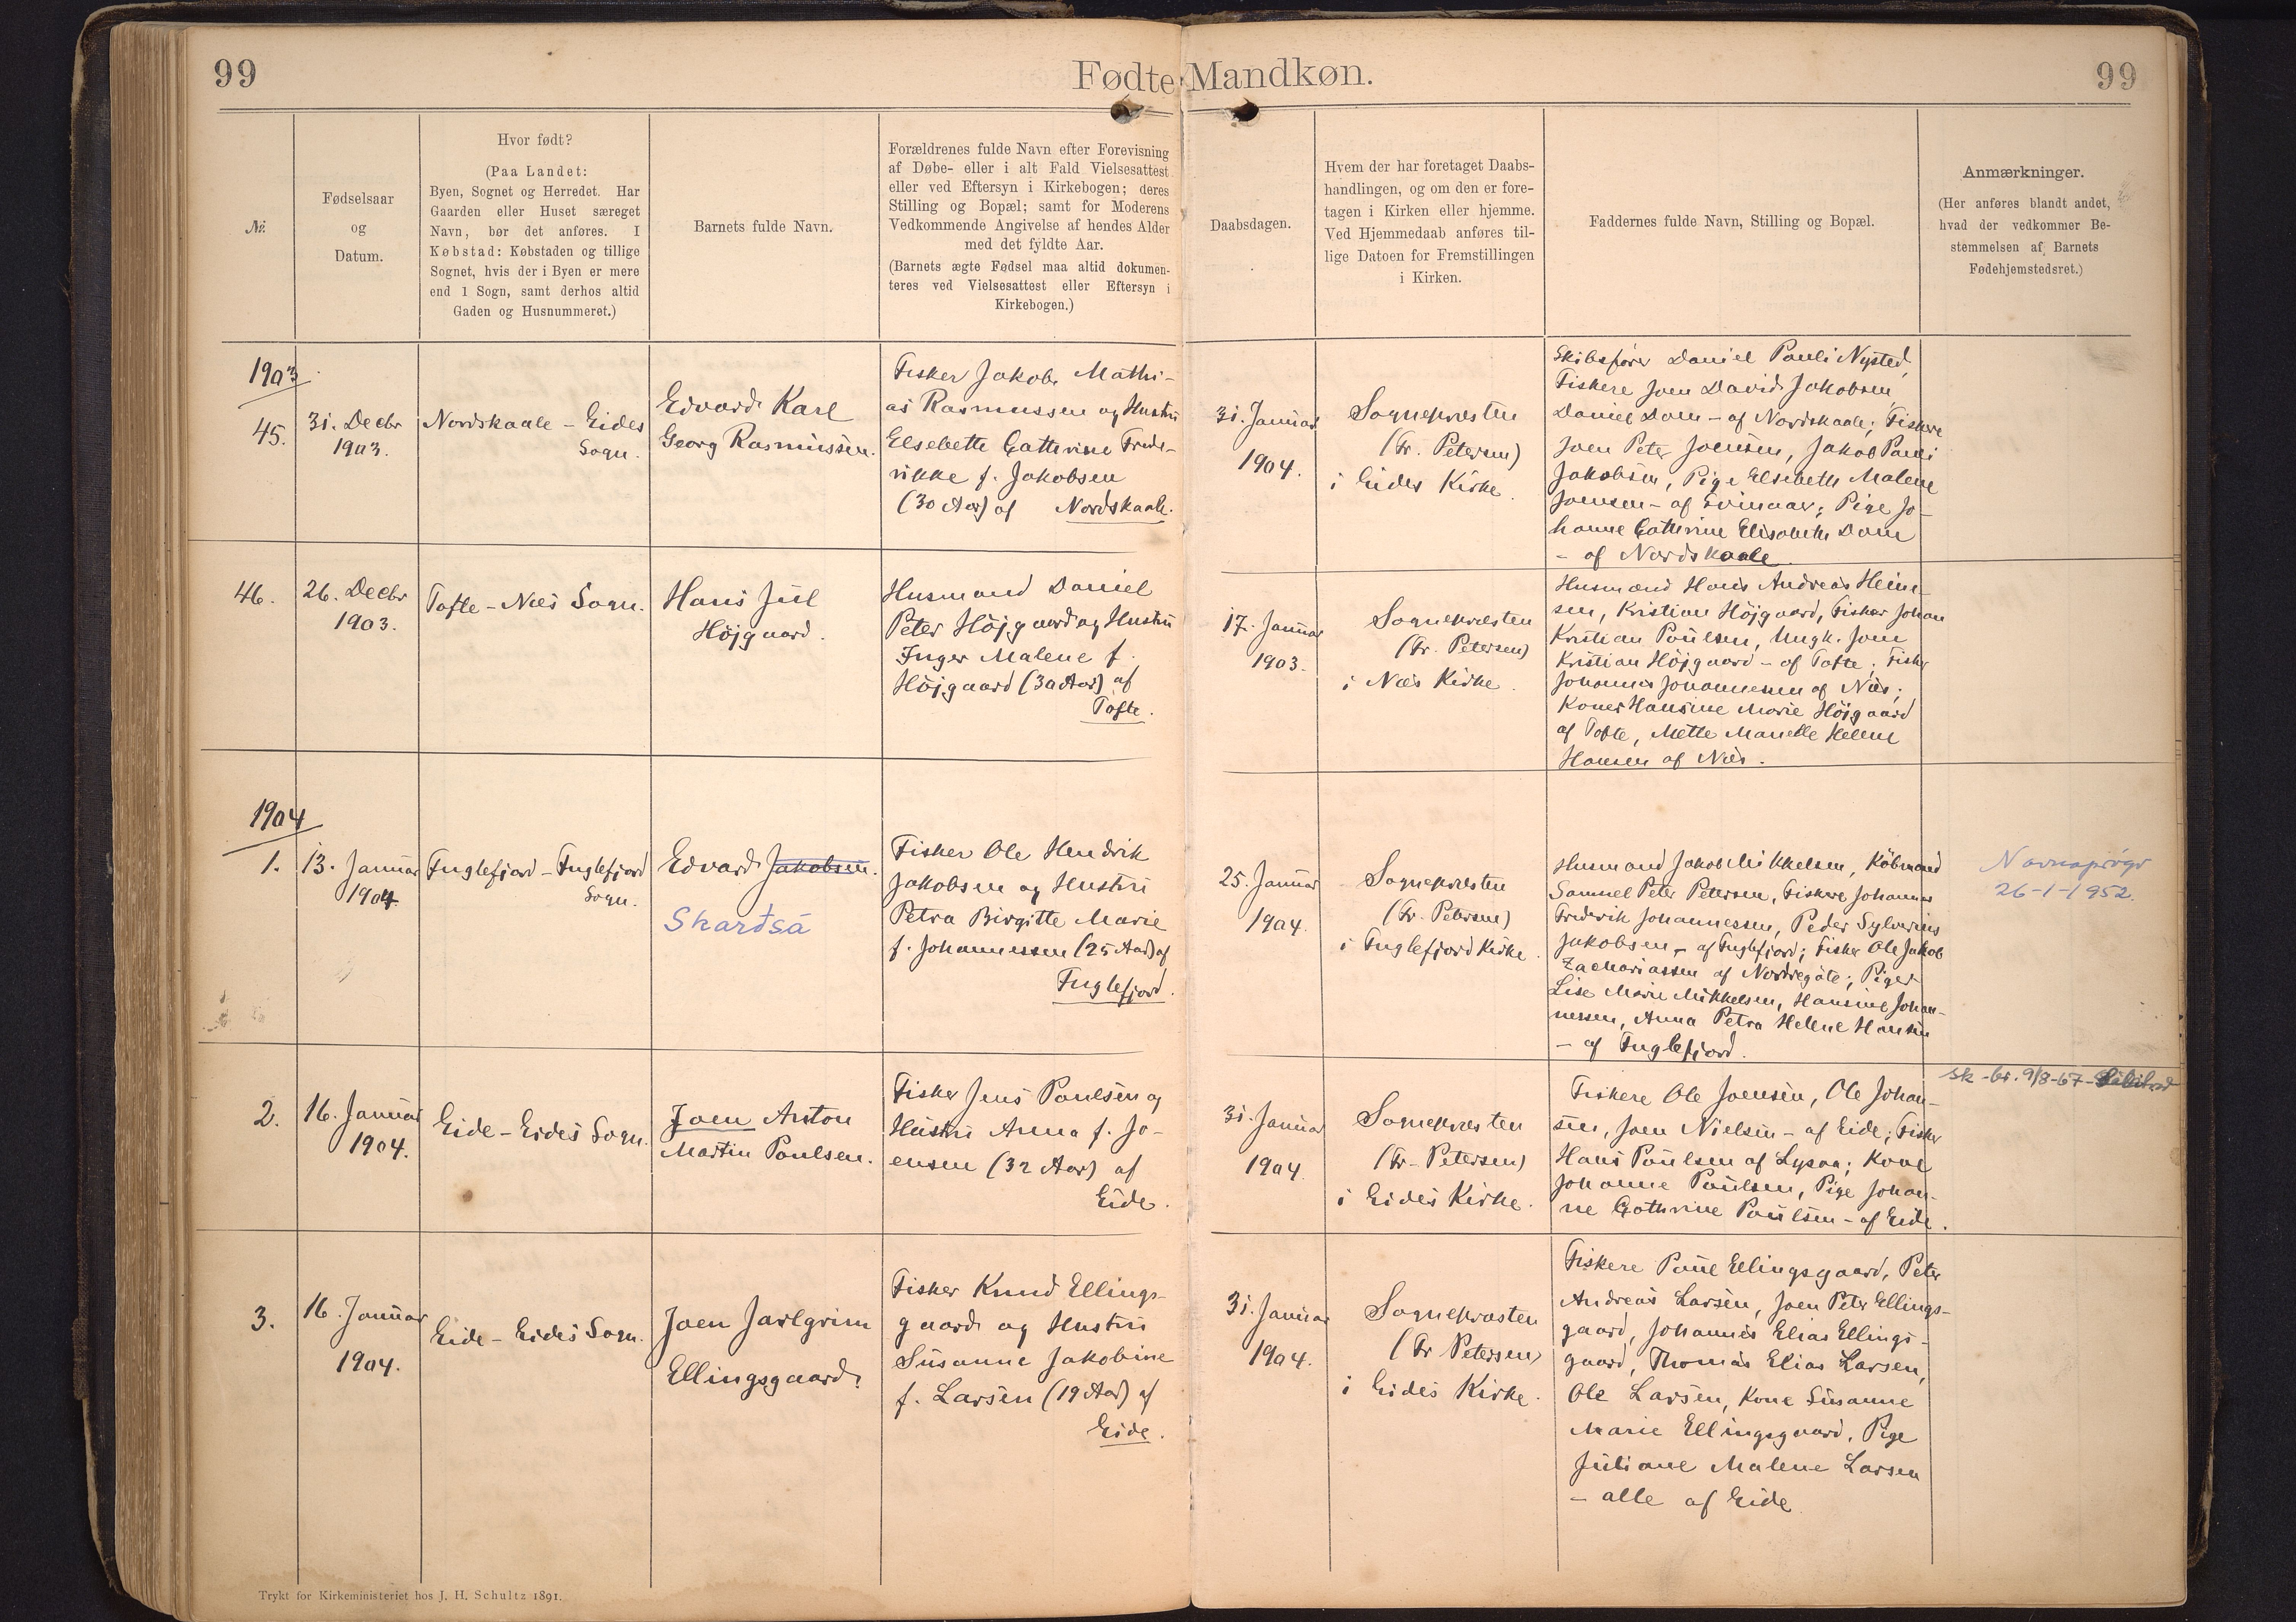 99
Fødte Mandkøn.
99
№.
Fødselsaar
og
Datum.
Hvor født?
(Paa Landet:
Byen, Sognet og Herredet. Har
Gaarden eller Huset særeget
Navn, bør det anføres. I
Købstad: Købstaden og tillige
Sognet, hvis der i Byen er mere
end 1 Sogn, samt derhos altid
Gaden og Husnummeret.)
Barnets fulde Navn.
Forældrenes fulde Navn efter Forevisning
af Døbe- eller i alt Fald Vielsesattest
eller ved Eftersyn i Kirkebogen; deres
Stilling og Bopæl; samt for Moderens
Vedkommende Angivelse af hendes Alder
med det fyldte Aar.
(Barnets ægte Fødsel maa altid dokumen-
teres ved Vielsesattest eller Eftersyn i
Kirkebogen.)
Daabsdagen.
Hvem der har foretaget Daabs-
handlingen, og om den er fore-
tagen i Kirken eller hjemme.
Ved Hjemmedaab anføres til-
lige Datoen for Fremstillingen
i Kirken.
Faddernes fulde Navn, Stilling og Bopæl.
Anmærkninger.
(Her anføres blandt andet,
hvad der vedkommer Be-
stemmelsen af Barnets
Fødehjemstedsret.)
1903
45.
31. Decbr
1903.
Nordskaale - Eides
Sogn.
Edvard Karl
Georg Rasmussen.
Fisker Jakob Mathi-
as Rasmussen og Hustru
Elsebette Cathrine Frede-
rikke f. Jakobsen
(30 Aar) af Nordskaale.
31. Januar
1904.
Sognepræsten
(Fr. Petersen)
i Eides Kirke.
Skibsfører Daniel Pauli Nysted,
Fiskere Joen David Jakobsen,
Daniel Dam - af Nordskaale; Fiskere
Joen Peter Joensen, Jakob Pauli
Jakobsen, Pige Elsebeth Malene
Joensen - af Svinaar; Pige Jo-
hanne Cathrine Elisabeth Dam
- af Nordskaale.
46.
26. Decbr
1903.
Tofte - Næs Sogn.
Hans Jul
Højgaard.
Husmand Daniel
Peter Højgaard og Hustru
Inger Malene f.
Højgaard (30 Aar) af
Tofte.
17. Januar
1903.
Sognepræsten
(Fr. Petersen)
i Næs Kirke.
Husmænd Hans Andreas Hein-
sen, Kristian Højgaard, Fisker Johan
Kristian Poulsen, Ungk. Joen
Kristian Højgaard - af Tofte; Fisker
Johannes Johannesen af Næs;
Koner Hansine Marie Højgaard
af Tofte, Mette Marielle Helene
Hansen af Næs.
1904
1.
13. Januar
1904.
Fuglefjord - Fuglefjord
Sogn.
Edvard Jakobsen.
Skarðsá
Fisker Ole Hendrik
Jakobsen og Hustru
Petra Birgitte Marie
f. Johannessen (25 Aar) af
Fuglefjord.
25. Januar
1904.
Sognepræsten
(Fr. Petersen)
i Fuglefjord Kirke.
Husmand Jakob Mikkelsen, Købmand
Samuel Peter Petersen, Fiskere Johannes
Frederik Johannessen, Peder Sylverius
Jakobsen - af Fuglefjord; Fisker Ole Jakob
Zachariassen af Nordregøte; Piger
Lise Marie Mikkelsen, Hansine Johan-
nessen, Anna Petra Helene Hansen
- af Fuglefjord.
26-1-1952.
2.
16. Januar
1904.
Eide - Eides Sogn.
Joen Anton
Martin Poulsen.
Fisker Jens Poulsen og
Hustru Anna f. Jo-
ensen (32 Aar) af
Eide.
31. Januar
1904.
Sognepræsten
(Fr. Petersen)
i Eides Kirke.
Fiskere Ole Joensen, Ole Johan-
sen, Joen Nielsen - af Eide; Fisker
Hans Poulsen af Lysaa; Kone
Johanne Poulsen, Pige Johan-
ne Cathrine Poulsen - af Eide.
sk-br. 9/8-67-
3.
16. Januar
1904.
Eide - Eides Sogn.
Joen Jarlgrim
Ellingsgaard.
Fisker Knud Ellings-
gaard og Hustru
Susanne Jakobine
f. Larsen (19 Aar) af
Eide.
31. Januar
1904.
Sognepræsten
(Fr Petersen)
i Eides Kirke.
Fiskere Poul Ellingsgaard, Peter
Andreas Larsen, Joen Peter Ellings-
gaard, Johannes Elias Ellings-
gaard, Thomas Elias Larsen,
Ole Larsen, Kone Susanne
Marie Ellingsgaard, Pige
Juliane Malene Larsen
- alle af Eide.
Trykt for Kirkeministeriet hos J. H. Schultz 1891.